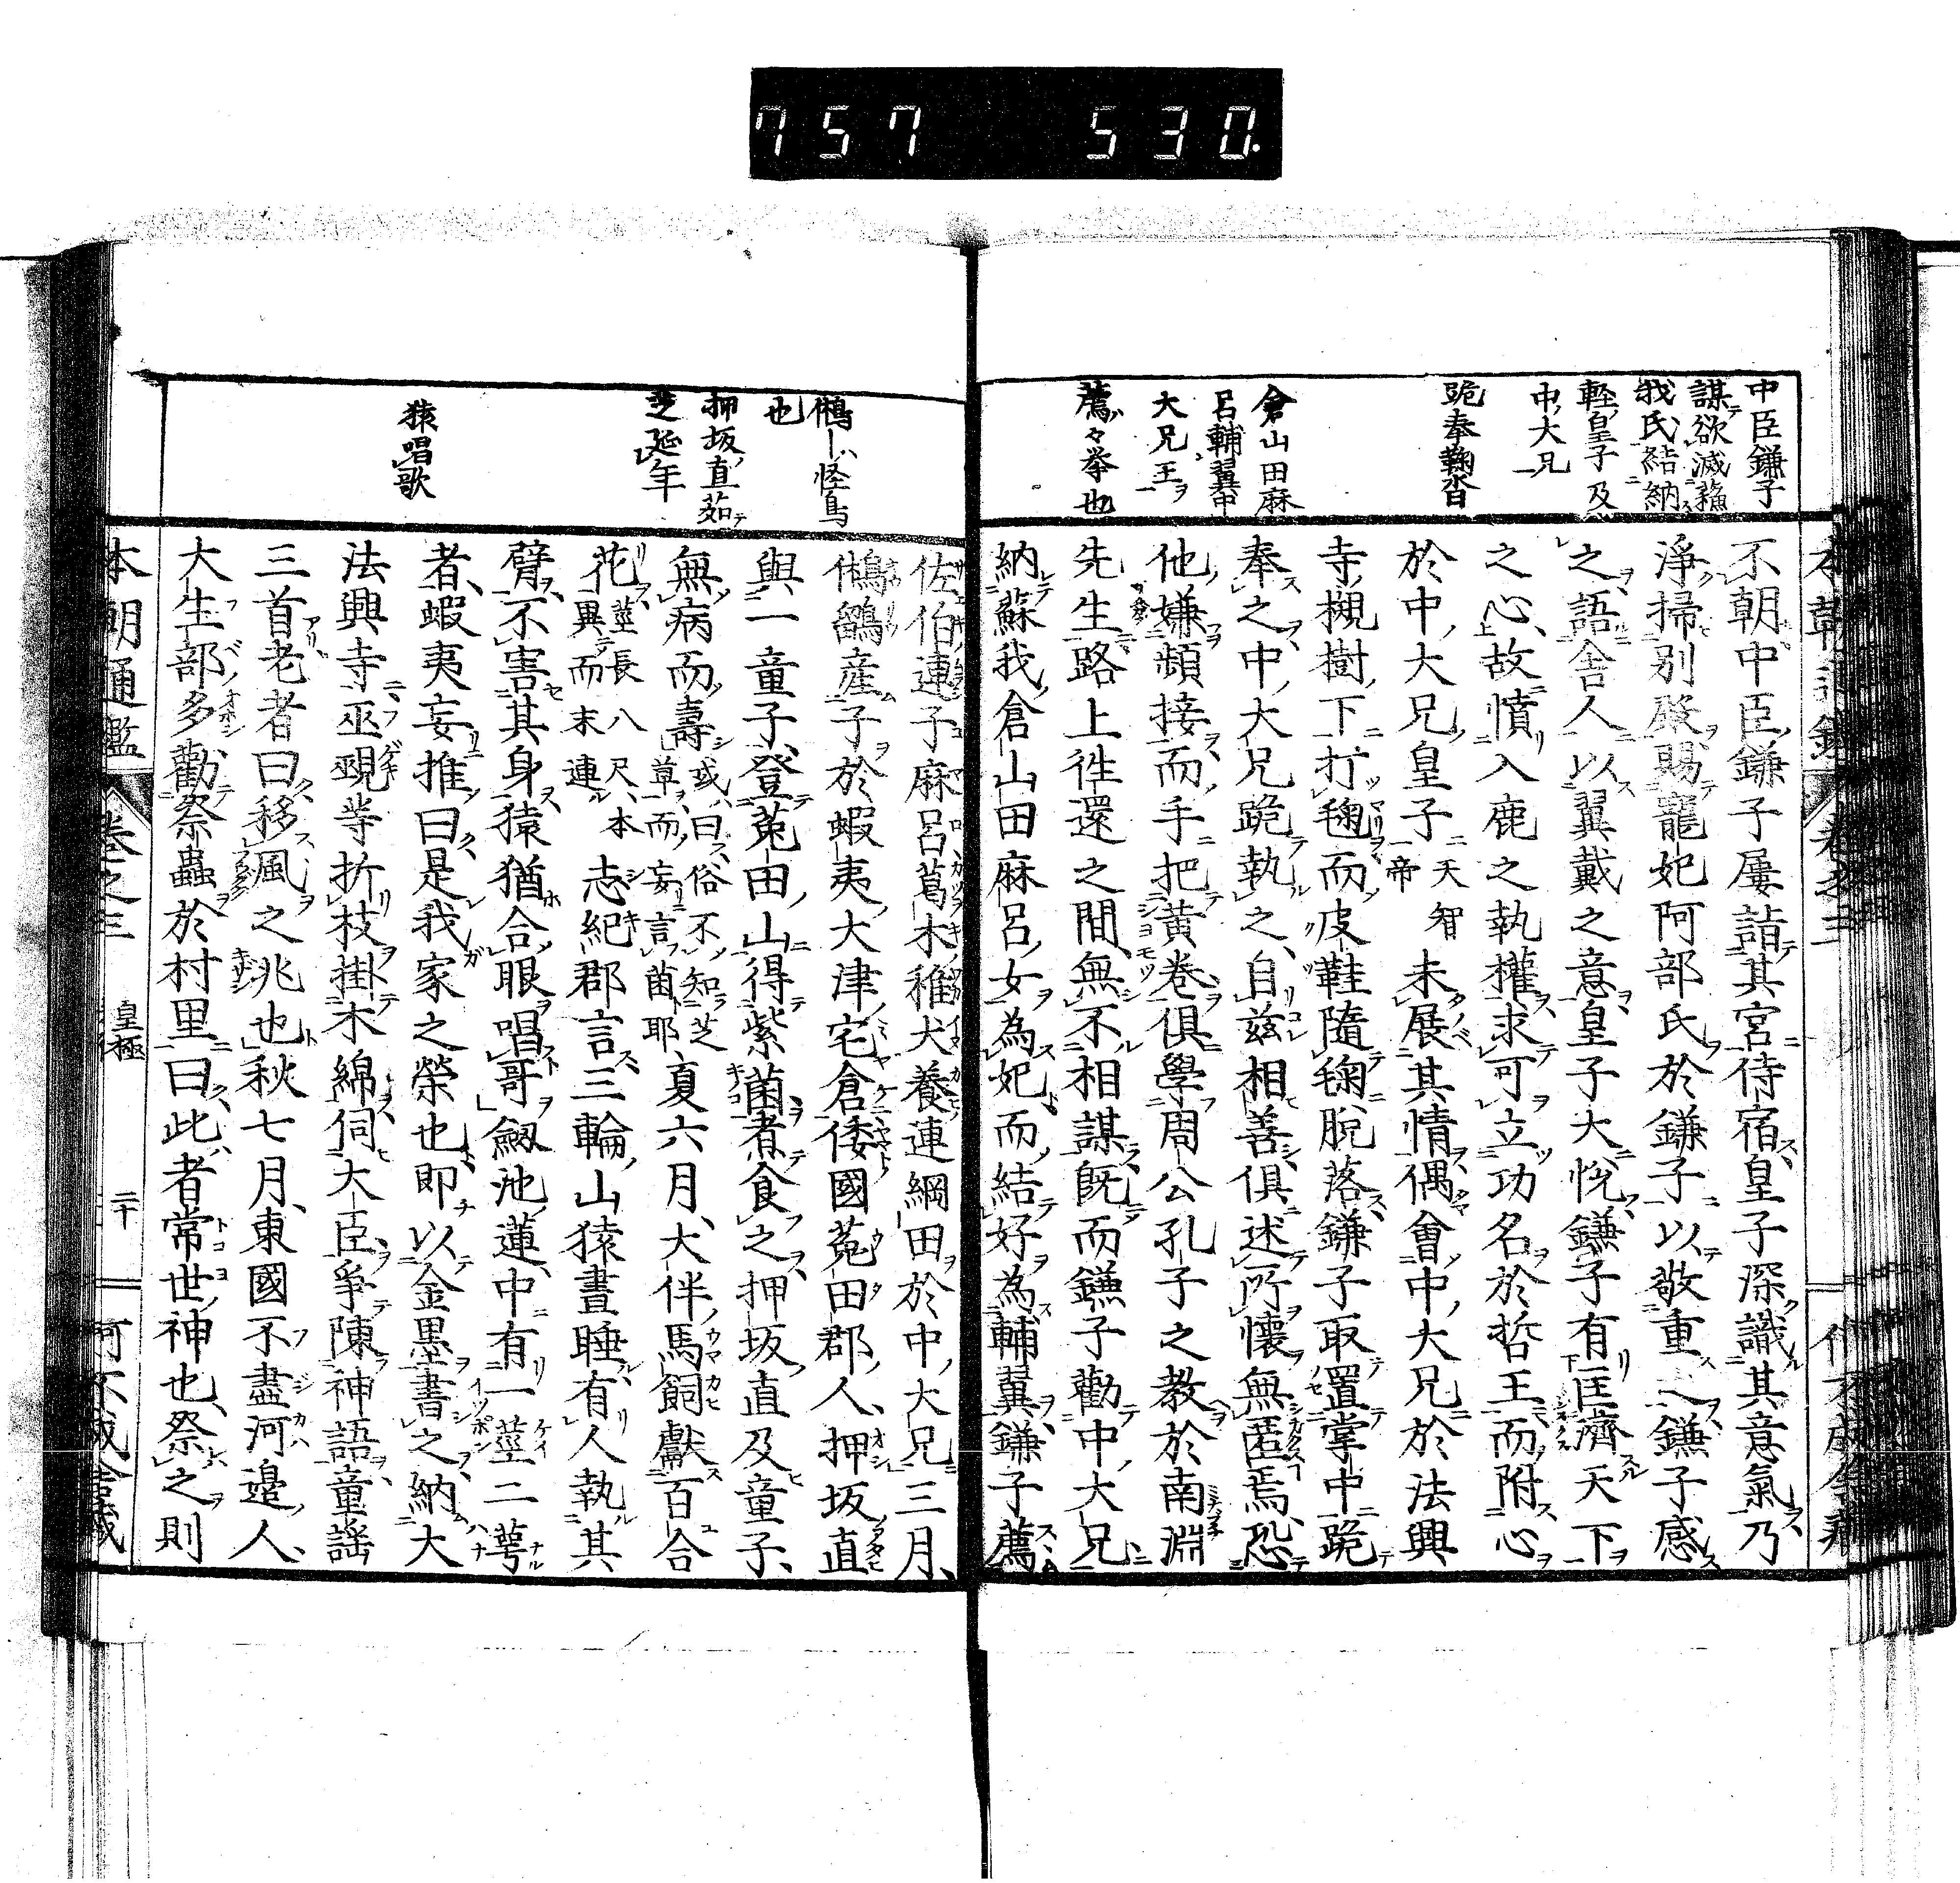 757 530.
中臣鎌子
謀欲滅蘇
我氏結納
輕皇子及
中大兄
跪奉鞠沓
倉山田麻
呂輔翼中
大兄王
薦々挙也
不朝中臣鎌子屢詣其宮待宿皇子深識其意氣乃
淨掃別殿賜寵妃阿部氏於鎌子以敬重之鎌子感
之語舎人以翼戴之意皇子大悅鎌子有匡濟天下
之心故憤入鹿之執權求可立功名於哲王而附心
於中大兄皇子天智帝未展其情偶會中大兄於法興
寺槻樹下打毱而皮鞋隨毱脫落鎌子取置掌中跪
奉之中大兄跪執之自茲相善俱述所懷無匿焉恐
他嫌頻接而手把黃巻俱學周公孔子之教於南淵
先生路上往還之間無不相謀既而鎌子勸中大兄
納蘇我倉山田麻呂女為妃而結好為輔翼鎌子薦
鵂ー怪鳥
也
押坂直茹
芝延年
猿唱歌
佐伯連子麻呂葛木稚犬養連綱田於中大兄三月
鵂鶹産子於蝦夷大津宅倉倭國菟田郡人押坂直
與一童子登菟田山得紫菌煮食之押坂直及童子
無病而壽或曰俗不知芝草而妄言菌耶夏六月大伴馬飼獻百合
花莖長八尺本異而末連志紀郡言三輪山猿晝睡有人執其
臂不害其身猿猶合眼唱哥劔池蓮中有一莖二蕚
者蝦夷妄推曰是我家之榮也即以金墨書之納大
法興寺巫覡等折枝掛木綿伺大臣爭陳神語童謡
三首老者曰移風之兆也秋七月東國不盡河邉人
大生部多勸祭蟲於村里曰此者常世神也祭之則
本朝通鑑 卷之三 皇極 二十